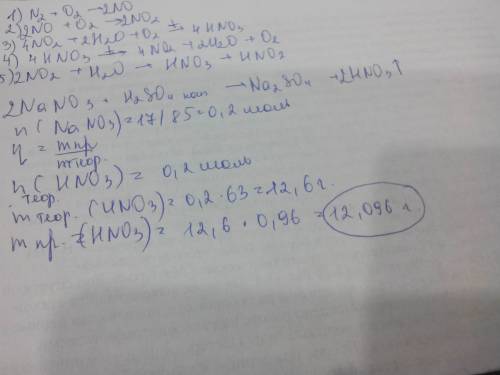 1) N₂ + O₂ → 2NO
2) 2NO + O₂ → 2NO₂
3) 4NO₂ + 2H₂O + O₂ ⇄ 4HNO₃
4) 4HNO₃ ⇄ 4NO₂ + 2H₂O + O₂
5) 2NO₂ + H₂O → HNO₃ + HNO₂
2NaNO₃ + H₂SO₄ конц → Na₂SO₄ + 2HNO₃↑
n(NaNO₃) = 17/85 = 0,2 моль
η = mпр/mтеор.
nтеор.(HNO₃) = 0,2 моль
m теор. (HNO₃) = 0,2 · 63 = 12,6 г.
m пр. (HNO₃) = 12,6 · 0,96 = 12,096 г.